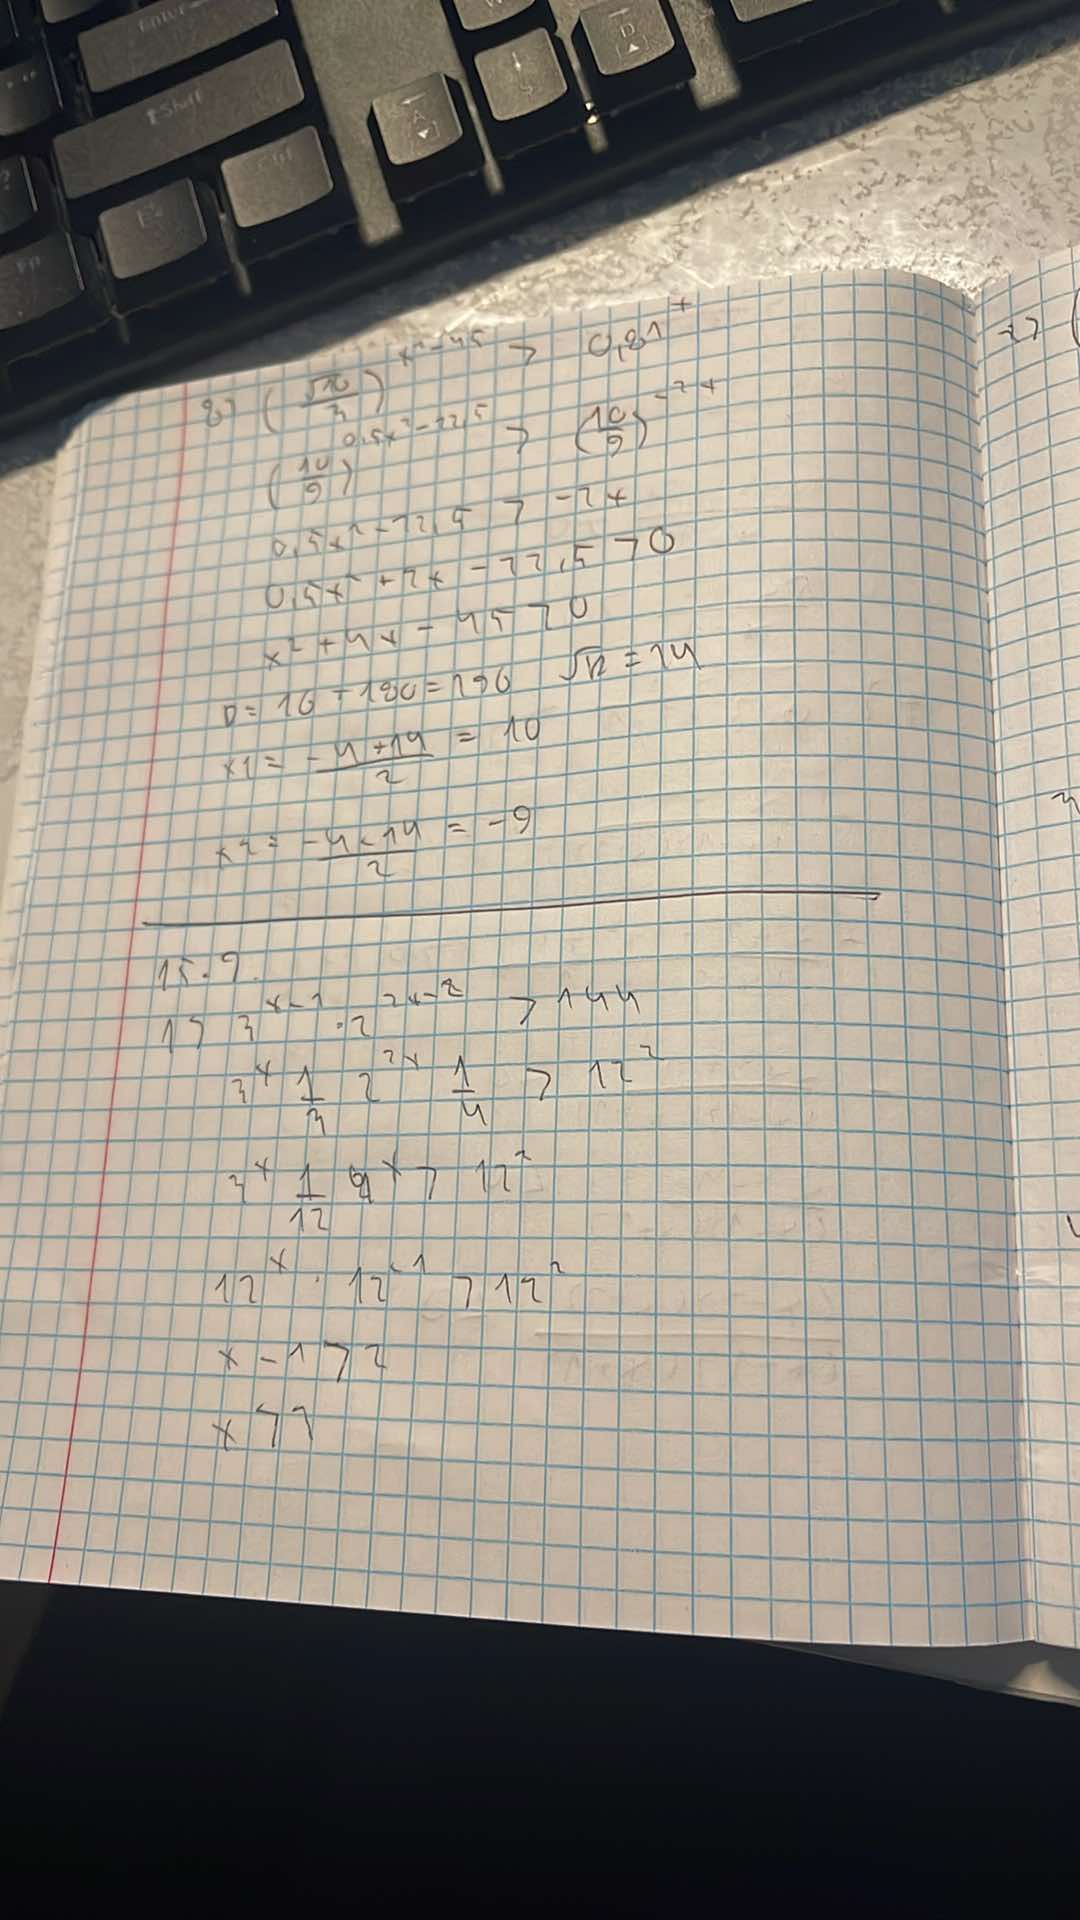 Enter
⇧Shift
Ctrl
Fn
A
S
D
8) (√10/3)^(x²-45) > 0,81^x
(10/9)^(0,5x²-22,5) > (10/9)^(-2x)
0,5x²-22,5 > -2x
0,5x²+2x-22,5>0
x²+4x-45>0
D=16+180=196 √D=14
x1= (-4+14)/2 = 10
x2= (-4-14)/2 = -9
15.9.
1) 3^(x-1) · 2^(2x-2) > 144
3^x 1/3 2^(2x) 1/4 > 12²
3^x 1/12 4^x > 12²
12^x · 12^(-1) > 12²
x-1>2
x>3
2) (